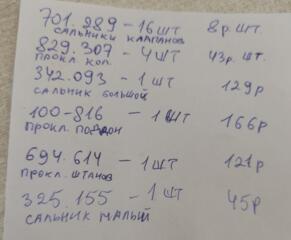 701.289 – 16 шт 8р. шт.
сальники клапанов
829.307 – 4 шт 43р. шт.
прокл. кол.
342.093 – 1 шт 129р
сальник большой
100-816 – 1 шт 166р
прокл. поддон
694.614 – 1 шт 121р
прокл. штанов
325.155 – 1 шт 45р
сальник малый